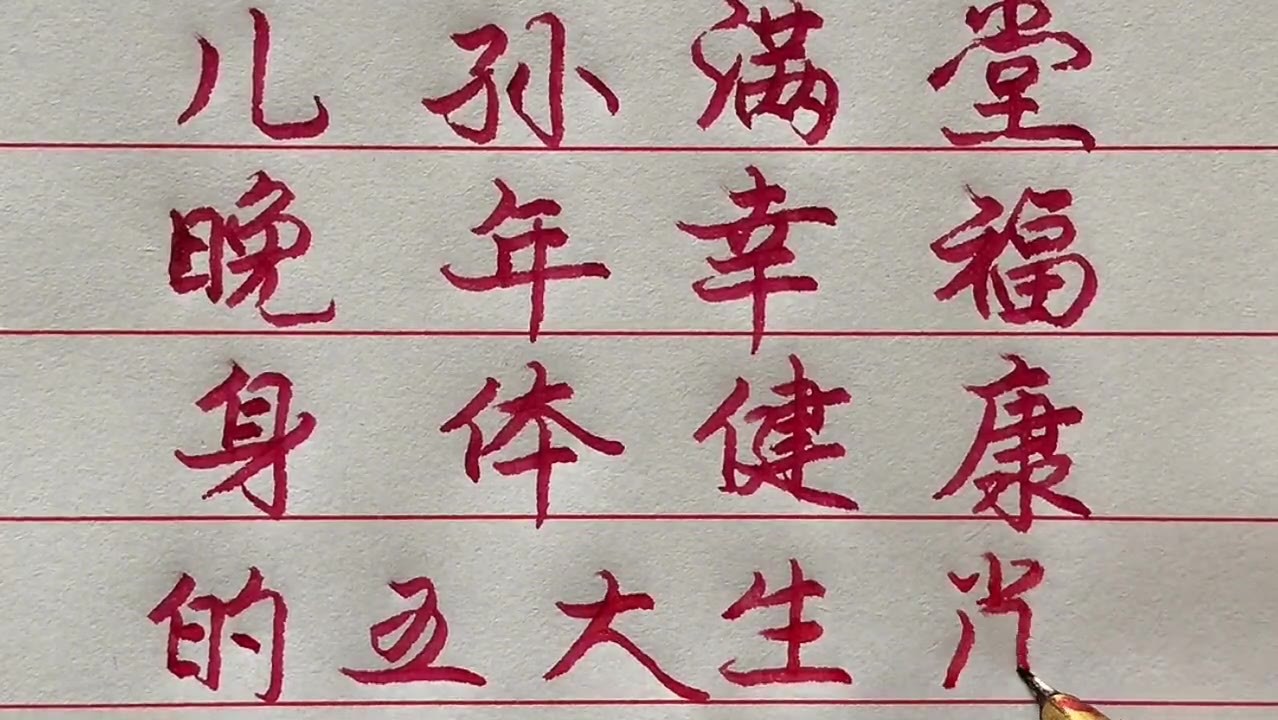 儿孙满堂
晚年幸福
身体健康
的五大生